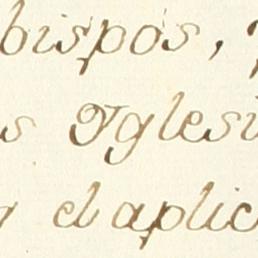 bispos,
s Yglesi
el aplic